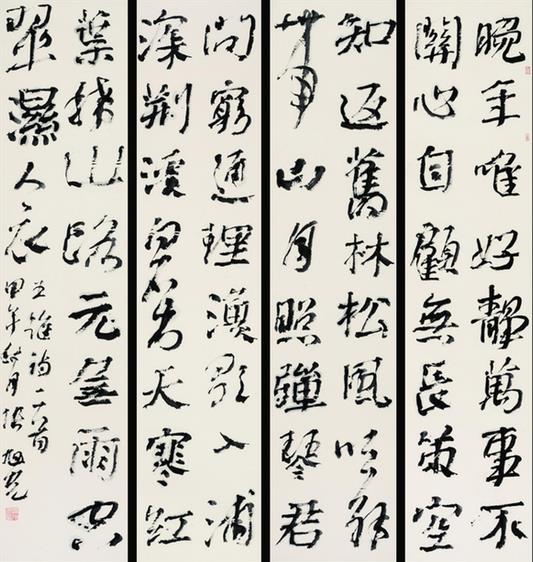 晚年唯好靜萬事不
關心自顧無長策空
知返舊林松風吹解
帶山月照彈琴君
問窮通理漁歌入浦
深荊溪白石出天寒紅
葉稀山路元無雨空
翠濕人衣
王維詩二首
甲午秋月張旭光